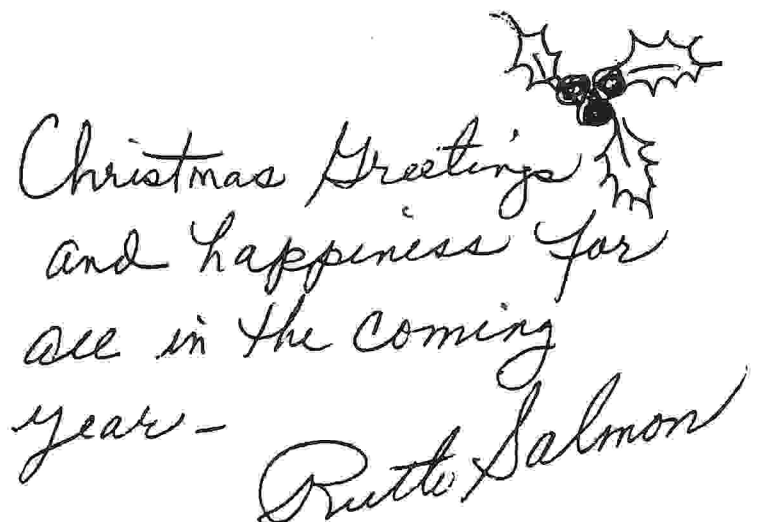 Christmas Greetings
and happiness for
all in the coming
year-
Ruth Salmon